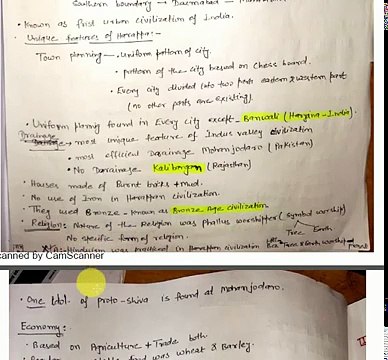 Southern boundary → Daemabad –
• Known as first urban civilization of India.
• Unique features of Harappa:-
Town planning — • Uniform pattern of city.
• pattern of the city based on chess board.
• Every city divided into two parts eastern & western part
(no other parts are existing).
• Uniform planning found in Every city except - Banwali (Haryana - India).
Drainage - • most unique feature of Indus valley civilization
• most efficient Darainage Mohanjodaro (Pakistan)
• No Darainage Kalibangan (Rajasthan)
• Houses made of Burnt bricks + mud.
• No use of Iron in Harappan civilization.
• They used Bronze - known as Bronze Age civilization.
• Religion: Nature of the Religion was phallus worshipper (symbol worship)
Tree Earth
No specific form of religion.
was practiced in Harappan civilization Tree & Earth worship
canned by CamScanner
• One Idol. of proto-shiva is found at Mohanjodaro.
Economy:-
• Based on Agriculture + Trade both
food was wheat & Barley.